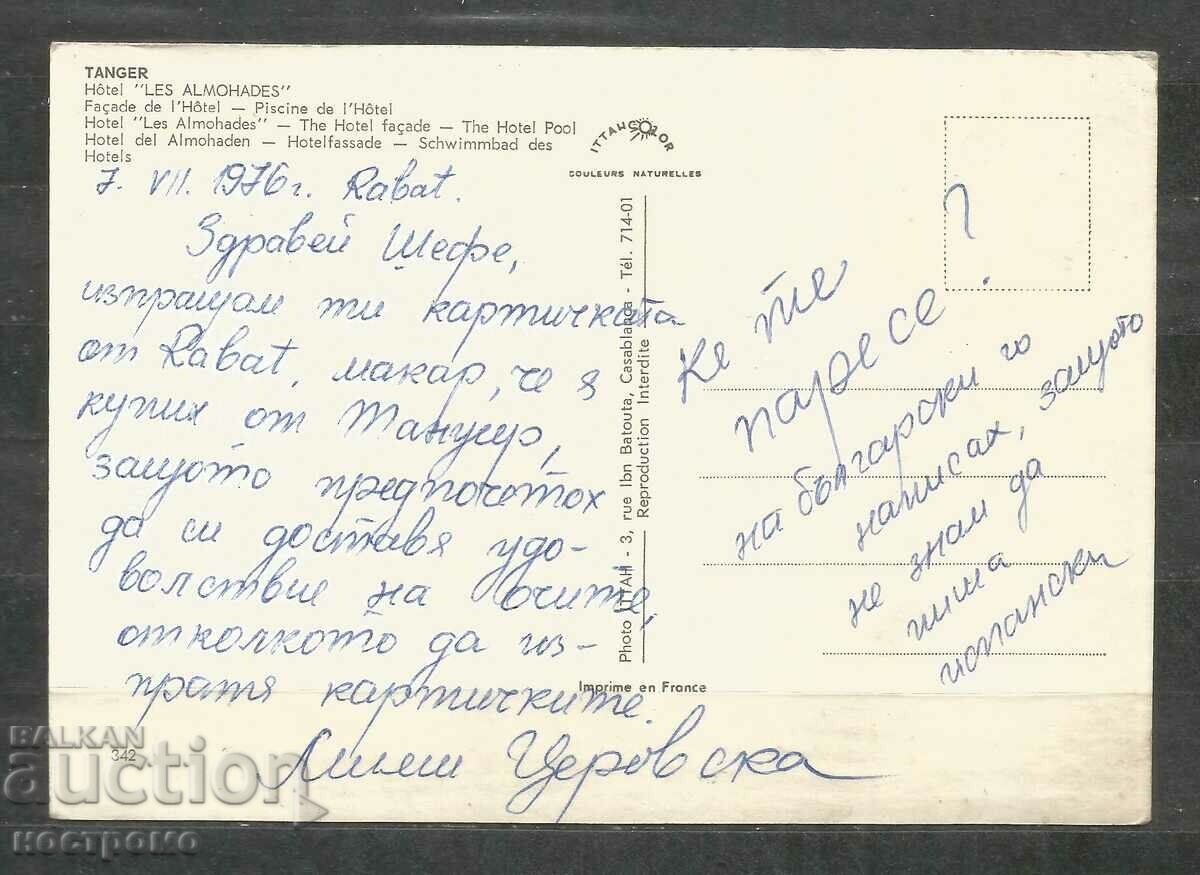 TANGER
Hôtel "LES ALMOHADES"
Façade de l'Hôtel — Piscine de l'Hôtel
Hotel "Les Almohades" — The Hotel façade — The Hotel Pool
Hotel del Almohaden — Hotelfassade — Schwimmbad des
Hotels
ITTAHCOLOR
COULEURS NATURELLES
7. VII. 1976 г. Rabat.
Здравей Шефе,
изпращам ти картичката
от Rabat, макар, че я
купих от Танжер,
защото предпочетох
да си доставя удо-
волствие на очите,
отколкото да из-
пратя картичките.
Лили Церовска
Photo ITTAH - 3, rue Ibn Batouta, Casablanca - Tél. 714-01
Reproduction Interdite
Imprime en France
342
Ке те
паресе ?
на български го
написах, защото
не знам да
пиша
испански
BALKAN
auction
ностромо